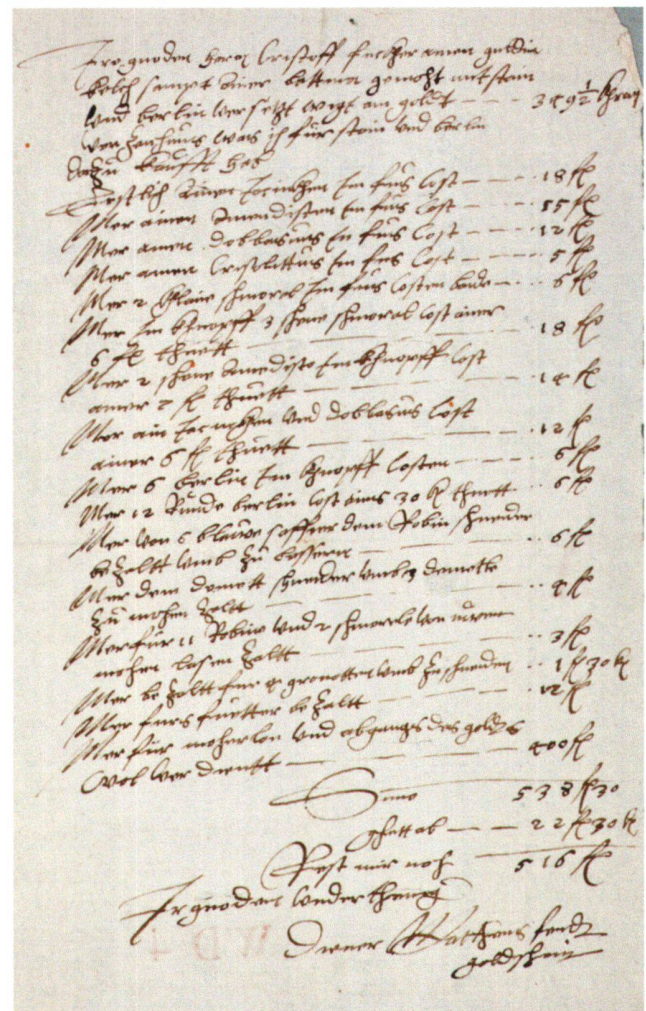 Iro gnoden herrn Cristoff fuckher ainen guldin
kelch sampt ainer battena gemacht mit stain
und berlin versetzt wigt an goldt — — 349½ khran
von zaichens was ich für stain und berlin
dazu kaufft hab
Erstlich ainen Jacinckhen im fus cost — — 18 fl
Mer ainen Amendisten im fus cost — — 15 fl
Mer ainen dobblasius im fus cost — — 12 fl
Mer ainen Crisolittus im fus cost — — 5 fl
Mer 2 klaine schmaral im fus costen baide — — 6 fl
Mer im khnopff 3 schene schmaral cost ainer
6 fl thuett — 18 fl
Mer 2 schene Amedisto im khnopff cost
ainer 7 fl thuett — 14 fl
Mer ain Jacinckhen und doblasius cost
ainer 6 fl thuett — 12 fl
Mer 6 berlin im khnopff costen — — 6 fl
Mer 12 Runde berlin cost ains 30 kr thuett — 6 fl
Mer von 6 blawe saffier dem Robin schneider
bezaltt umb zu bessern — 6 fl
Mer dem demett schneider umb 3 demette
zu machen zaltt — 4 fl
Mer für 11 Robine und 2 schmarele von
machen lasen zaltt — 3 fl
Mer bezaltt fur 4 granotten umb zu schneiden — 1 fl 30 kr
Mer furs fuetter bezaltt — 12 fl
Mer für macherlon und abgangs des goldts
wol verdientt — 400 fl
Suma 538 fl 30
Ghett ab — — 22 fl 30 kr
Rest mir noch 516 fl
Ir gnoden underthenig
Diener Matheus fendt
goldschmit
WD 4